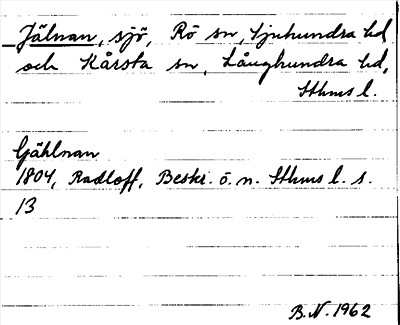 Jälnan, sjö, Rö sn, Sjuhundra hd
och Kårsta sn, Långhundra hd,
Sthms l.
Gählnan
1804, Radloff, Beskr. ö. n. Sthms l. s.
13
B.N. 1962